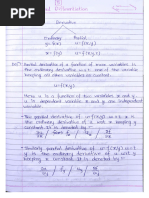 Partial Differentiation
Derivative
Ordinary Partial
y=f(x) u=f(x,y)
x=f(y) z=f(x,y)
Partial derivative of a function of more variables is
the ordinary derivative w.r.t. one of the variable
keeping all other variables as constant.
u=f(x,y)
Here u is a function of two variables x and y.
u is dependent variable x and y are independent
variable.
The partial derivative of u=f(x,y) w.r.t. x is
the ordinary derivative of u w.r.t. x keeping
y as constant. It is denoted by
Similarly partial derivative of u=f(x,y) w.r.t. y
is the ordinary derivative of u w.r.t. y keeping
x as constant. It is denoted by